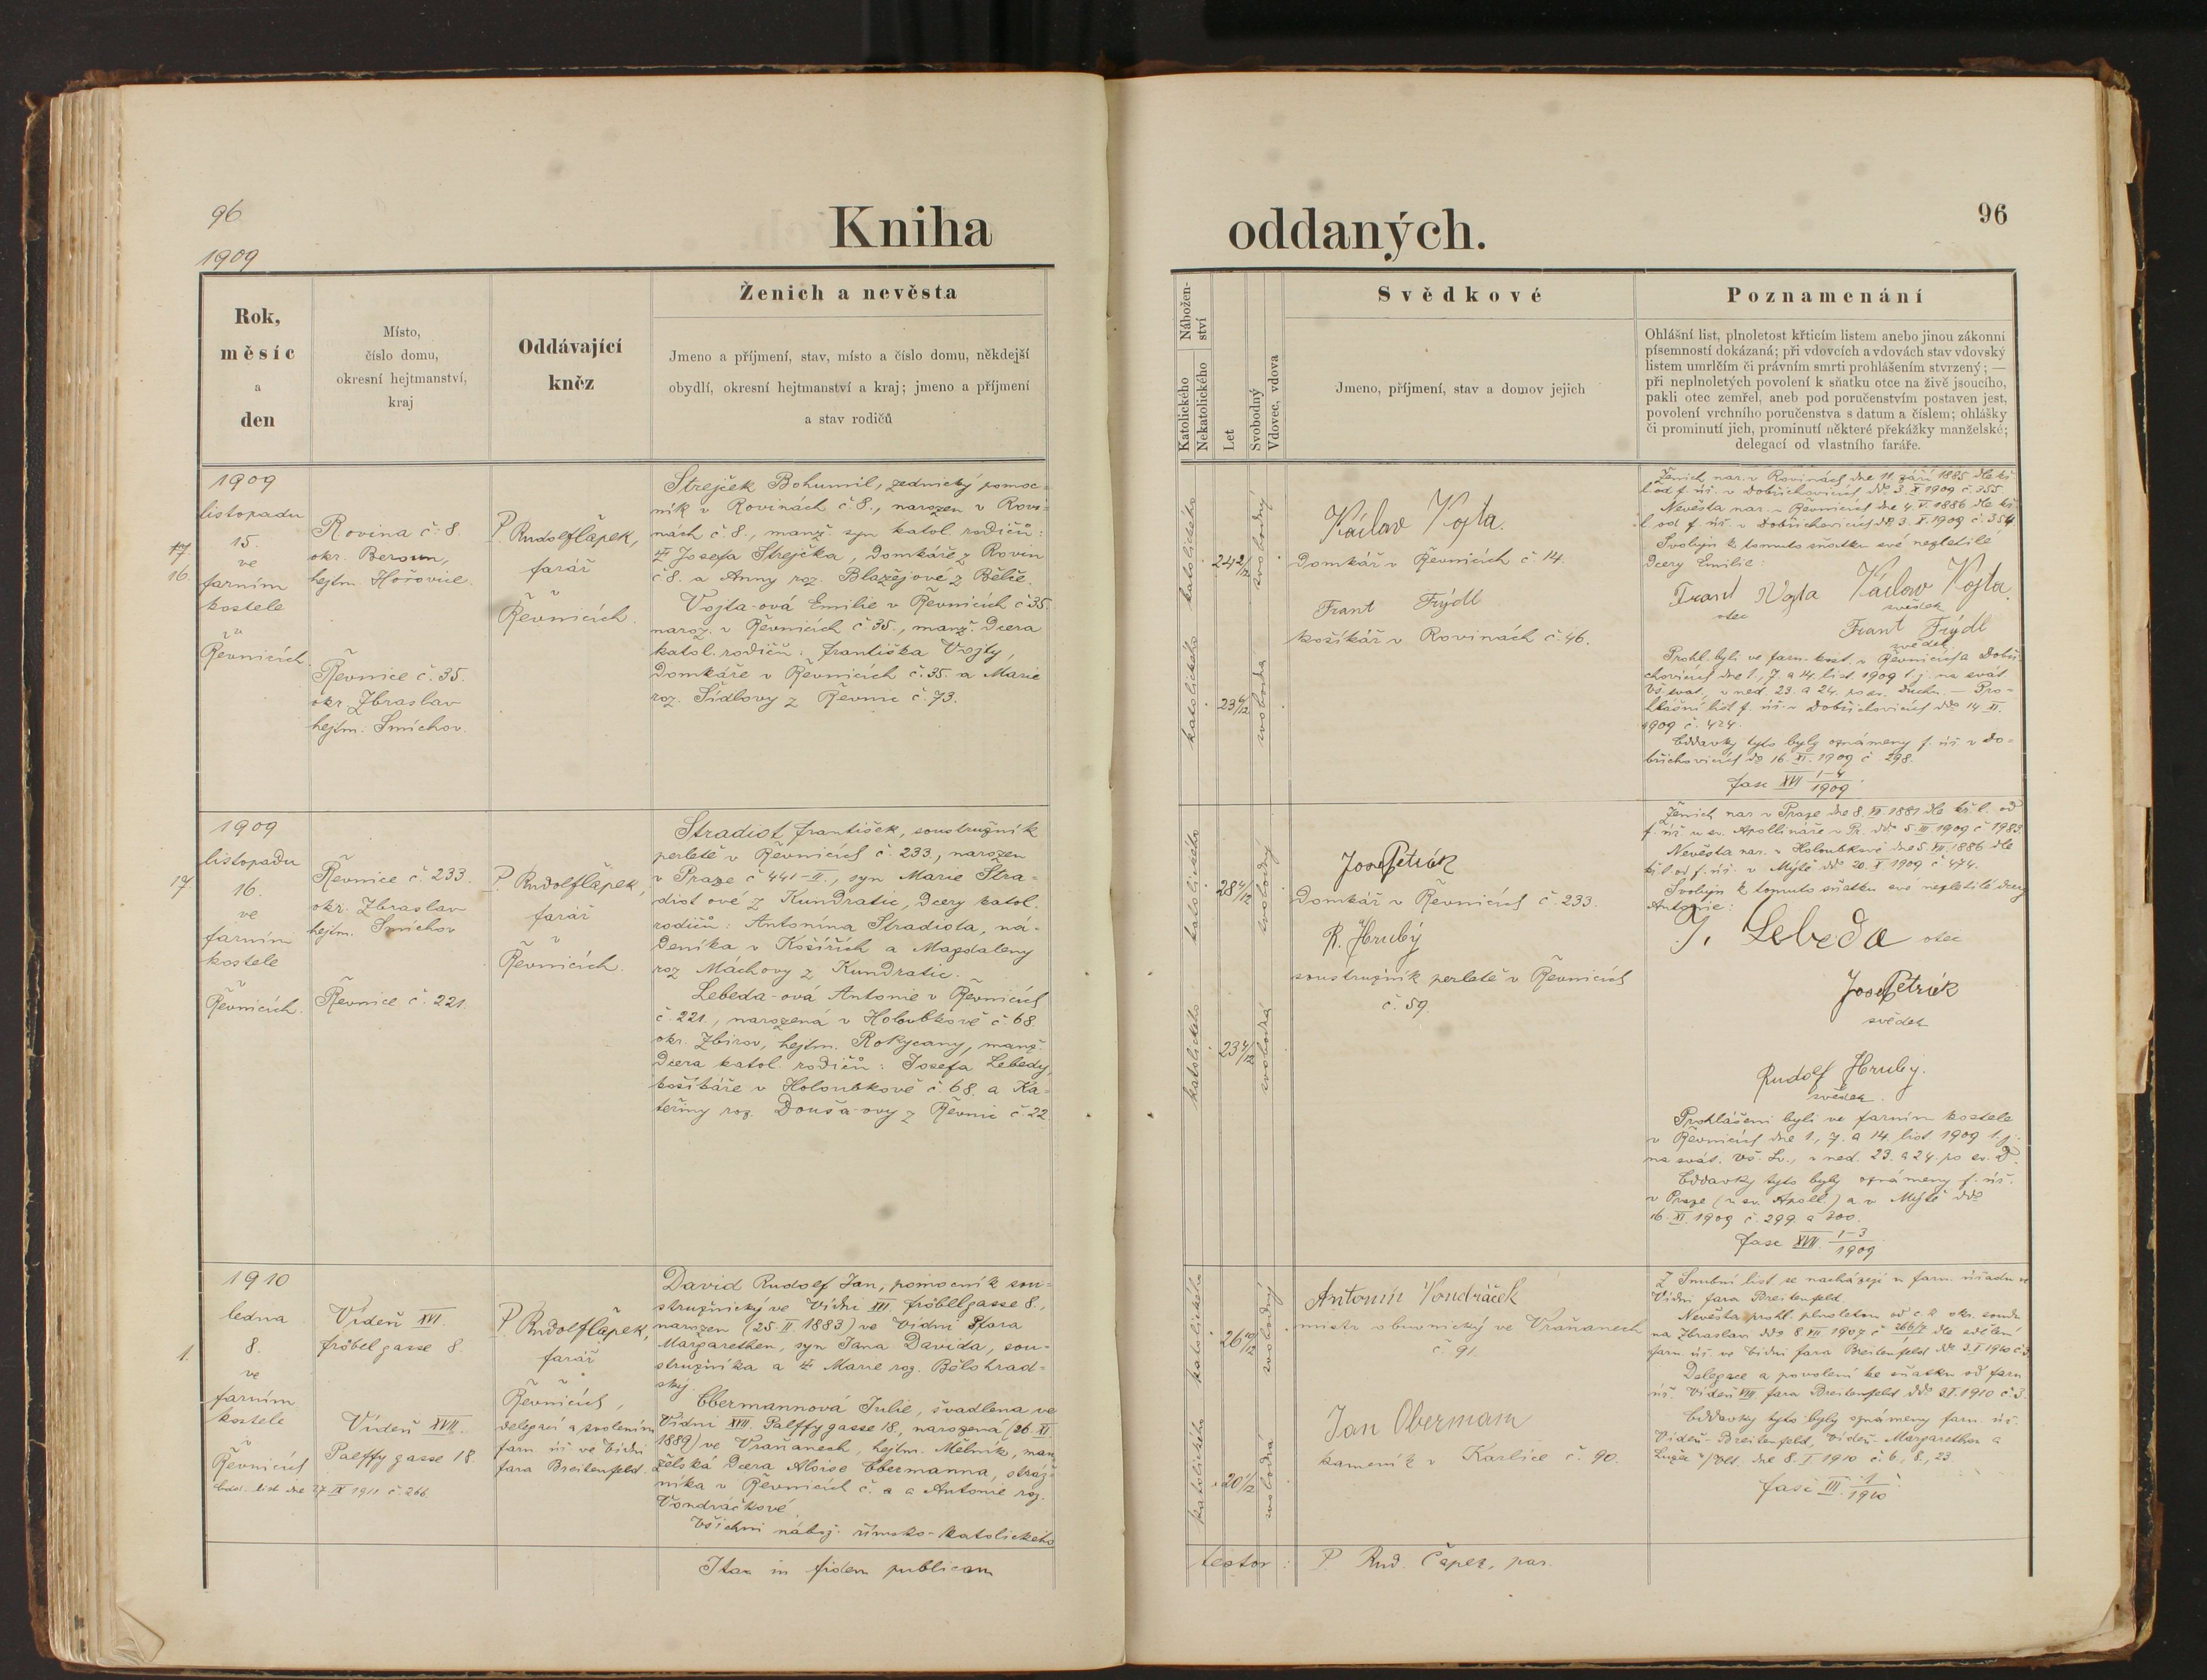 96
1909
Kniha
Rok,
měsíc
a
den
Místo,
číslo domu,
okresní hejtmanství,
kraj
Oddávající
kněz
Ženich a nevěsta
Jmeno a příjmení, stav, místo a číslo domu, někdejší
obydlí, okresní hejtmanství a kraj; jmeno a příjmení
a stav rodičů
17.
16.
1909
listopadu
15.
ve
farním
kostele
v
Řevnicích.
Rovina č. 8.
okr. Beroun,
hejtm. Hořovice.
Řevnice č. 35.
okr. Zbraslav
hejtm. Smíchov.
P. Rudolf Čapek,
farář
v
Řevnicích.
Strejček Bohumil, zednický pomoc-
ník v Rovinách č. 8., narozen v Rovi-
nách č. 8., manž. syn katol. rodičů:
Josefa Strejčka, domkáře z Rovin
č 8. a Anny roz. Blažejové z Bělče.
Vojta-ová Emilie v Řevnicích č 35
naroz. v Řevnicích č. 35., manž. dcera
katol. rodičů: Františka Vojty,
domkáře v Řevnicích č. 35. a Marie
roz. Šídlovy z Řevnic č. 73.
17.
1909
listopadu
16.
ve
farním
kostele
v
Řevnicích.
Řevnice č. 233.
okr. Zbraslav
hejtm. Smíchov
Řevnice č. 221.
P. Rudolf Čapek,
farář
v
Řevnicích.
Stradiot František, soustružník
perletě v Řevnicích č. 233., narozen
v Praze č 441-II., syn Marie Stra-
diot ové z Kundratic, dcery katol.
rodičů: Antonína Stradiota, ná-
deníka v Košířích a Magdaleny
roz Máchovy z Kundratic.
Lebeda-ová Antonie v Řevnicích
č. 221., narozená v Holoubkově č. 68.
okr. Zbirov, hejtm. Rokycany, manž.
dcera katol. rodičů: Josefa Lebedy,
košíkáře v Holoubkově č 68. a Ka-
teřiny roz. Douša-ovy z Řevnic č. 22
1.
1910
ledna
8.
ve
farním
kostele
v
Řevnicích
Odd. list dne 27. IX 1911 č. 266
Vídeň XVI.
Fröbelgasse 8.
Vídeň XVII.
Palffygasse 18.
P. Rudolf Čapek,
farář
v
Řevnicích,
delegací a svolením
farn úř ve Vídni
fara Breitenfeld.
David Rudolf Jan, pomocník sou-
stružnický ve Vídni XVI. Fröbelgasse 8.,
narozen (25. II. 1883) ve Vídni fara
Margarethen, syn Jana Davida, sou-
stružníka a Marie roz. Bělohrad-
ský.
Obermannová Julie, švadlena ve
Vídni XVII. Palffygasse 18., narozená (26. XI.
1889) ve Vraňanech, hejtm. Mělník, man-
želská dcera Aloise Obermanna, stráž-
níka v Řevnicích č. a a Antonie roz.
Vondráčkové.
Všichni nábož. římsko-katolického
Itan in fidem publicam
oddaných.
96
Nábožen-
ství
Katolického
Nekatolického
Let
Svobodný
Vdovec, vdova
Svědkové
Jmeno, příjmení, stav a domov jejich
Poznamenání
Ohlášní list, plnoletost křticím listem anebo jinou zákonni
písemností dokázaná; při vdovcích a vdovách stav vdovský
listem umrlčím či právním smrti prohlášením stvrzený; —
při neplnoletých povolení k sňatku otce na živě jsoucího,
pakli otec zemřel, aneb pod poručenstvím postaven jest,
povolení vrchního poručenstva s datum a číslem; ohlášky
či prominutí jich, prominutí některé překážky manželské;
delegací od vlastního faráře.
katolického
24 2/12
svobodný
katolického
23 6/12
svobodna
Václav Vojta.
domkář v Řevnicích č 14.
Frant Frýdl
košíkář v Rovinách č. 46.
Ženich nar. v Rovinách dne 11. září 1885 dle kř.
l. od f. úř. v Dobřichovicích ddo 3. X 1909 č. 355
Nevěsta nar. v Řevnicích dne 4. V. 1886 dle kř.
l. od f. úř. v Dobřichovicích dto 3. X. 1909 č. 354.
Svoluji k tomuto sňatku své nezletilé
dcery Emilie:
Frant Vojta Václav Vojta.
otec svědek
Frant Frýdl
svědek
Prohl. byli ve farn. kost. v Řevnicích a Dobři-
chovicích dne 1., 7. a 14. list. 1909 t. j. na svát.
Vš. svat., v ned. 23. a 24. po sv. Duchu. — Pro-
hlášní list f. úř. v Dobřichovicích ddo 14. XI.
1909 č. 424.
Oddavky tyto byly oznámeny f. úř. v Do-
břichovicích do 16. XI. 1909 č. 298.
fasc XVI 1-4/1909
katolického
28 4/12
svobodný
katolického
23 4/12
svobodná
Josef Petrák
Domkář v Řevnicích č. 233.
R. Hrubý
soustružník perletě v Řevnicích
č. 59.
Ženich nar v Praze dne 8. VII. 1881 dle kř l. od
f. úř. u sv. Apollináře v Pr. ddo 5. III. 1909 č 1983.
Nevěsta nar. v Holoubkově dne 5. VII. 1886 dle
kř l. od f. úř. v Mýtě ddo 20. X 1909 č 474.
Svoluji k tomuto sňatku své nezletilé dcery
Antonie:
J. Lebeda otec
Josef Petrák
svědek
Rudolf Hrubý.
svědek.
Prohlášeni byli ve farním kostele
v Řevnicích dne 1., 7. a 14. list 1909 t. j.
na svát. Vš. Sv., v ned. 23. a 24. po sv. D.
Oddavky tyto byly oznámeny f. úř.
v Praze (u sv. Apoll.) a v Mýtě ddo
16. XI. 1909 č. 299. a 300.
fasc XVII. 1-3/1909
katolického
26 10/12
svobodný
katolického
20 1/12
svobodná
Antonín Vondráček
mistr obuvnický ve Vraňanech
č. 91.
Jan Obermann
kameník v Karlíce č. 90.
Snubní list se nacházejí u farn. úřadu ve
Vídni fara Breitenfeld.
Nevěsta prohl. plnoletou od c. k. okr. soudu
na Zbraslavi ddo 8. VII 1907 č dle sdělení
farn. úř. ve Vídni fara Breitenfeld ddo 3. I. 1910 č 3.
Delegace a povolení ke sňatku od farn
úř. Vídeň VIII fara Breitenfeld ddo 3. I. 1910 č 3.
Oddavky tyto byly oznámeny farn. úř.
Vídeň-Breitenfeld, Vídeň-Margarethen a
Lužec n/Vlt. dne 8. I. 1910 č. 6., 8., 23.
fasc III. 1/1910
testor: P. Rud. Čapek, par.